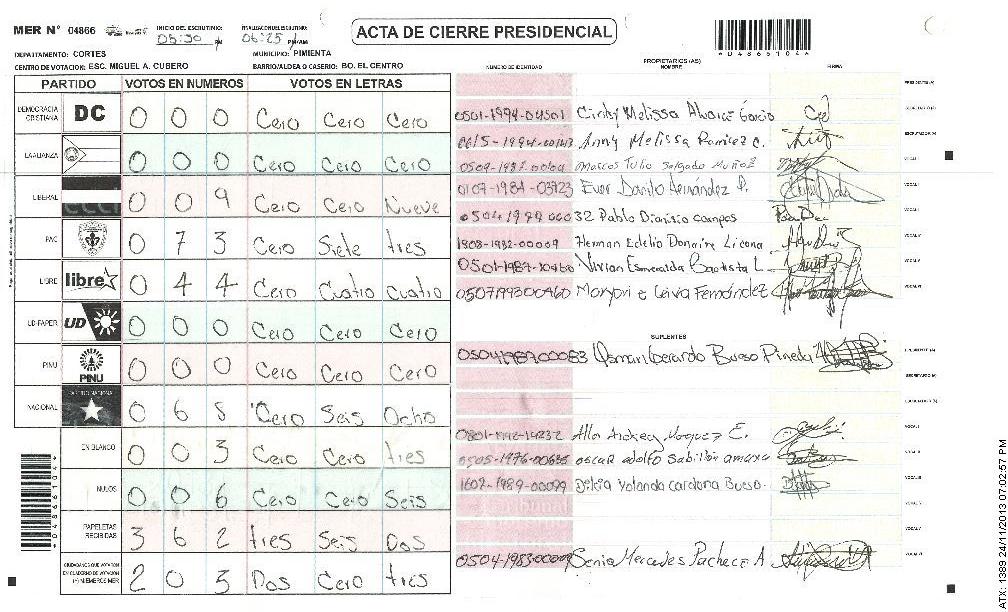 MER Nº 04866 INICIO DEL ESCRUTINIO: 05:30 PM FINALIZACION DEL ESCRUTINIO: 06:25 PM/AM
ACTA DE CIERRE PRESIDENCIAL
DEPARTAMENTO: CORTES MUNICIPIO: PIMIENTA
CENTRO DE VOTACION: ESC. MIGUEL A. CUBERO BARRIO/ALDEA O CASERIO: BO. EL CENTRO
*04866104*
NUMERO DE IDENTIDAD PROPIETARIOS (AS) NOMBRE FIRMA
PARTIDO VOTOS EN NUMEROS VOTOS EN LETRAS
DEMOCRACIA CRISTIANA DC 0 0 0 Cero Cero Cero
LA ALIANZA 0 0 0 Cero Cero Cero
LIBERAL 0 0 9 Cero Cero Nueve
PAC 0 7 3 Cero Siete tres
LIBRE libre 0 4 4 Cero Cuatro cuatro
UD-FAPER UD 0 0 0 Cero Cero Cero
PINU PINU 0 0 0 Cero Cero Cero
NACIONAL PARTIDO NACIONAL 0 6 8 Cero Seis Ocho
EN BLANCO 0 0 3 Cero Cero tres
NULOS 0 0 6 Cero Cero Seis
PAPELETAS RECIBIDAS 3 6 2 tres Seis Dos
CIUDADANOS QUE VOTARON EN CUADERNO DE VOTACION (+) MIEMBROS MER 2 0 3 Dos Cero tres
0501-1994-04501 Cindy Melissa Alvarez Garcia
Anny Melissa Ramirez
Marcos Tulio Salgado Muñoz
0107-1984-03923 Ever Danilo Hernández P.
Pablo Dionisio Campos
1808-1982-00009 Herman Edelio Donaire Licona
Vivian Esmeralda Bautista L.
0507199300460 Fernández
SUPLENTES
0504198700083 Osman Gerardo Bueso Pineda
0801-1992-14232
0505-1976-00635 oscar adolfo Sabillón amaya
1602-1989-00099 Delcia Yolanda Cardona Bueso.
Senia Mercedes Pacheco A
*04866104*
ATX: 1389 24/11/2013 07:02:57 PM